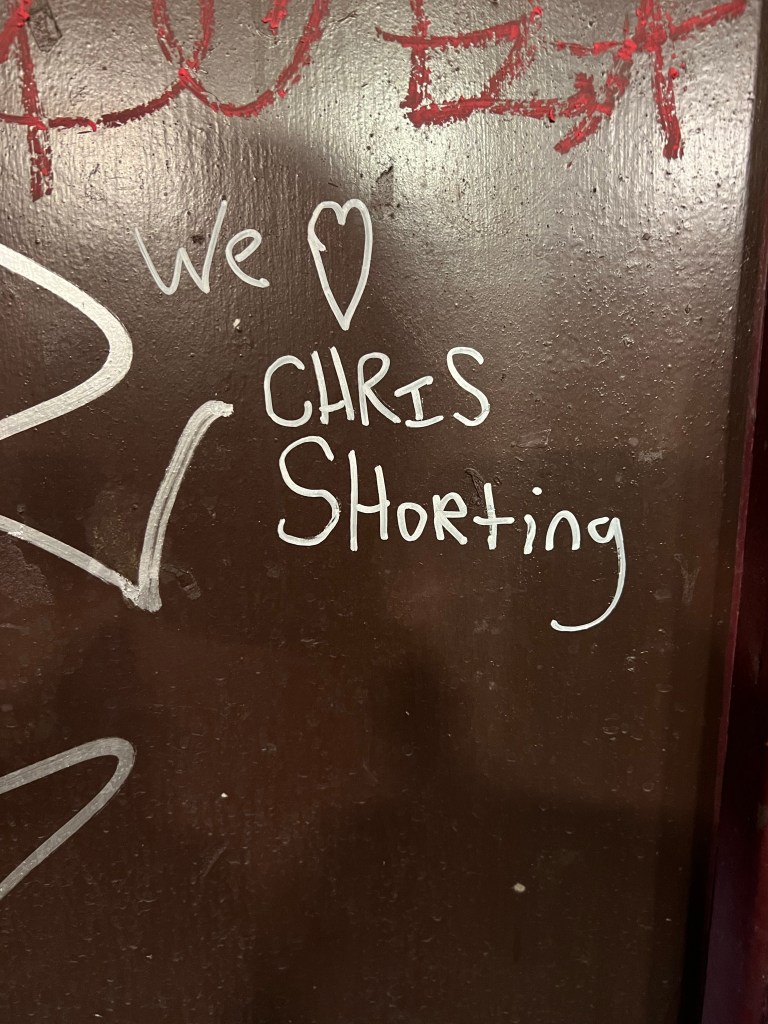 We ♡
CHRIS
SHORting